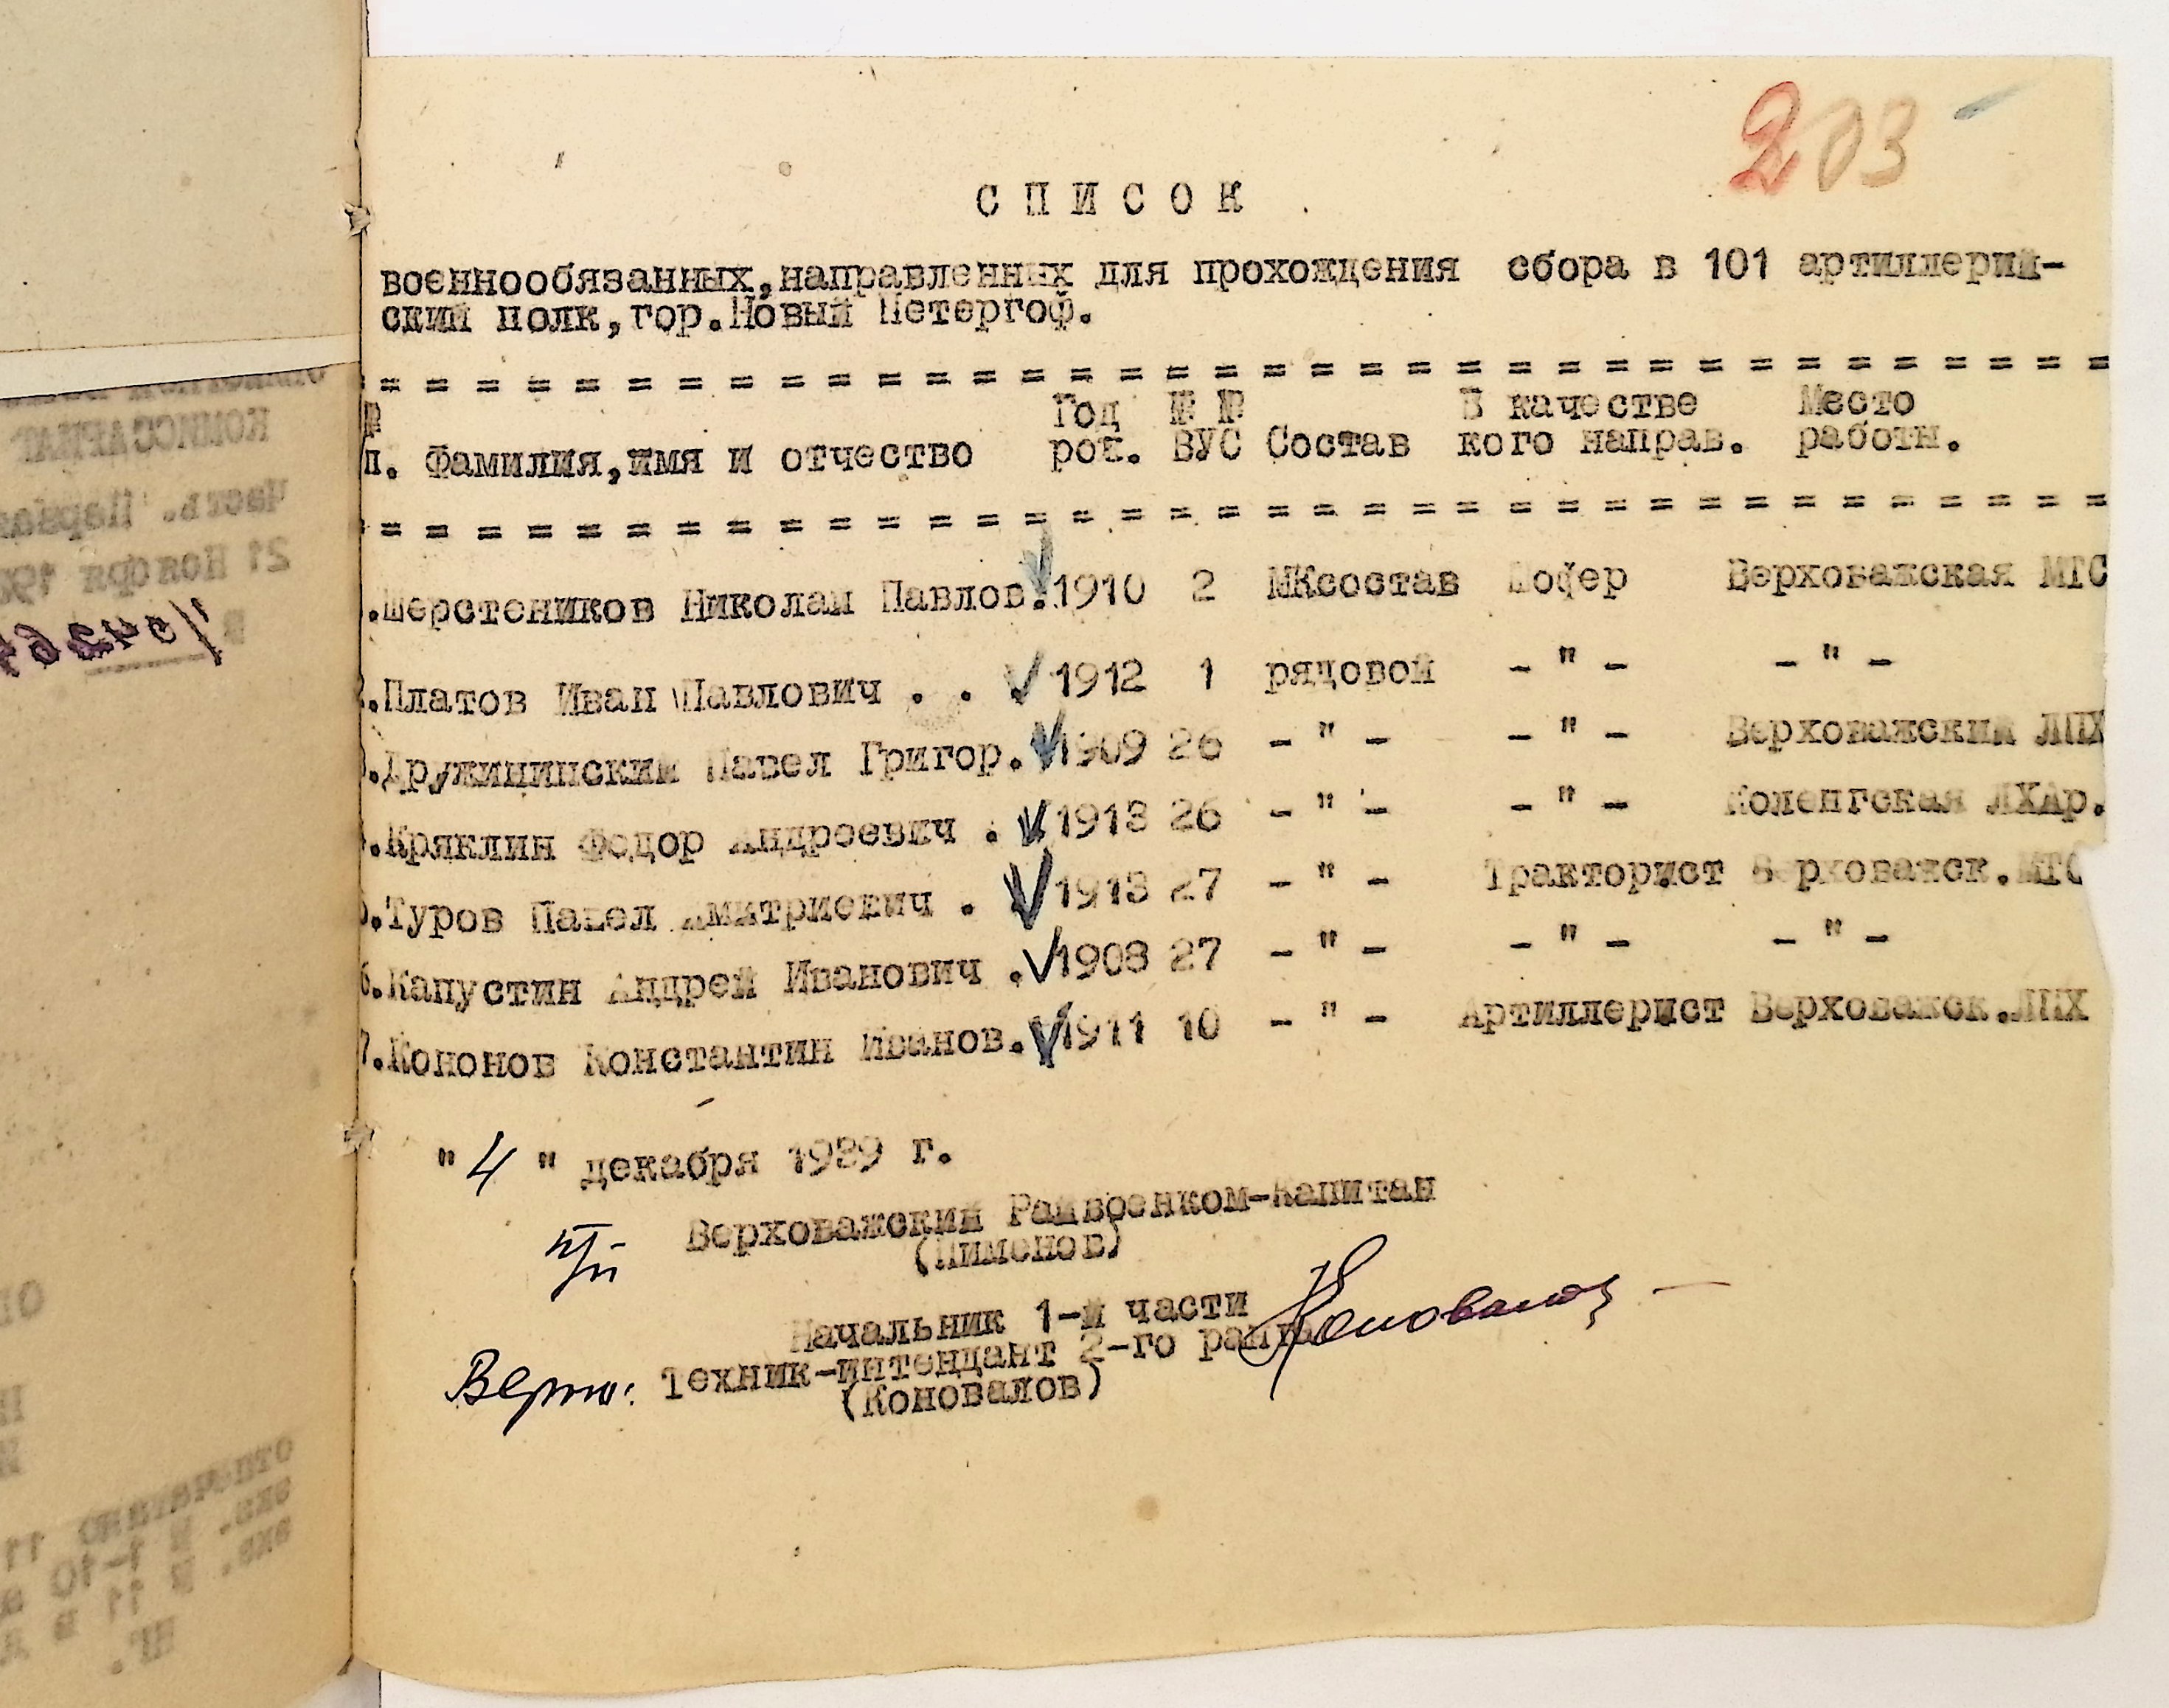 203
С П И С О К
военнообязанных, направленных для прохождения сбора в 101 артиллерий-
ский полк, гор. Новый Петергоф.
№ Год № № В качестве Место
п. Фамилия, имя и отчество рож. ВУС Состав кого направ. работы.
.Шерстеников Николай Павлов. 1910 2 МКсостав Шофер Верховажская МТС
2.Платов Иван Павлович . . 1912 1 рядовой - " - - " -
3.Дружининский Павел Григор. 1909 26 - " - - " - Верховажский ЛПХ
.Кряклин Федор Андреевич . 1913 26 - " - - " - Коленгская ЛХАр.
5.Туров Павел Дмитриевич . 1913 27 - " - Тракторист Верховажск.МТС
6.Капустин Андрей Иванович . 1908 27 - " - - " - - " -
7.Кононов Константин Иванов. 1911 10 - " - Артиллерист Верховажск.ЛПХ
" 4 " декабря 1939 г.
п/п Верховажский Райвоенком-Капитан
(Пименов)
Начальник 1-й части
Верно: Техник-интендант 2-го ранга Коновалов
(Коновалов)
КОМИССАРИАТ
Часть. Первая
21 Ноября 19
отпечатано 11
экз. № 1-10
экз. № 11 в
НГ.